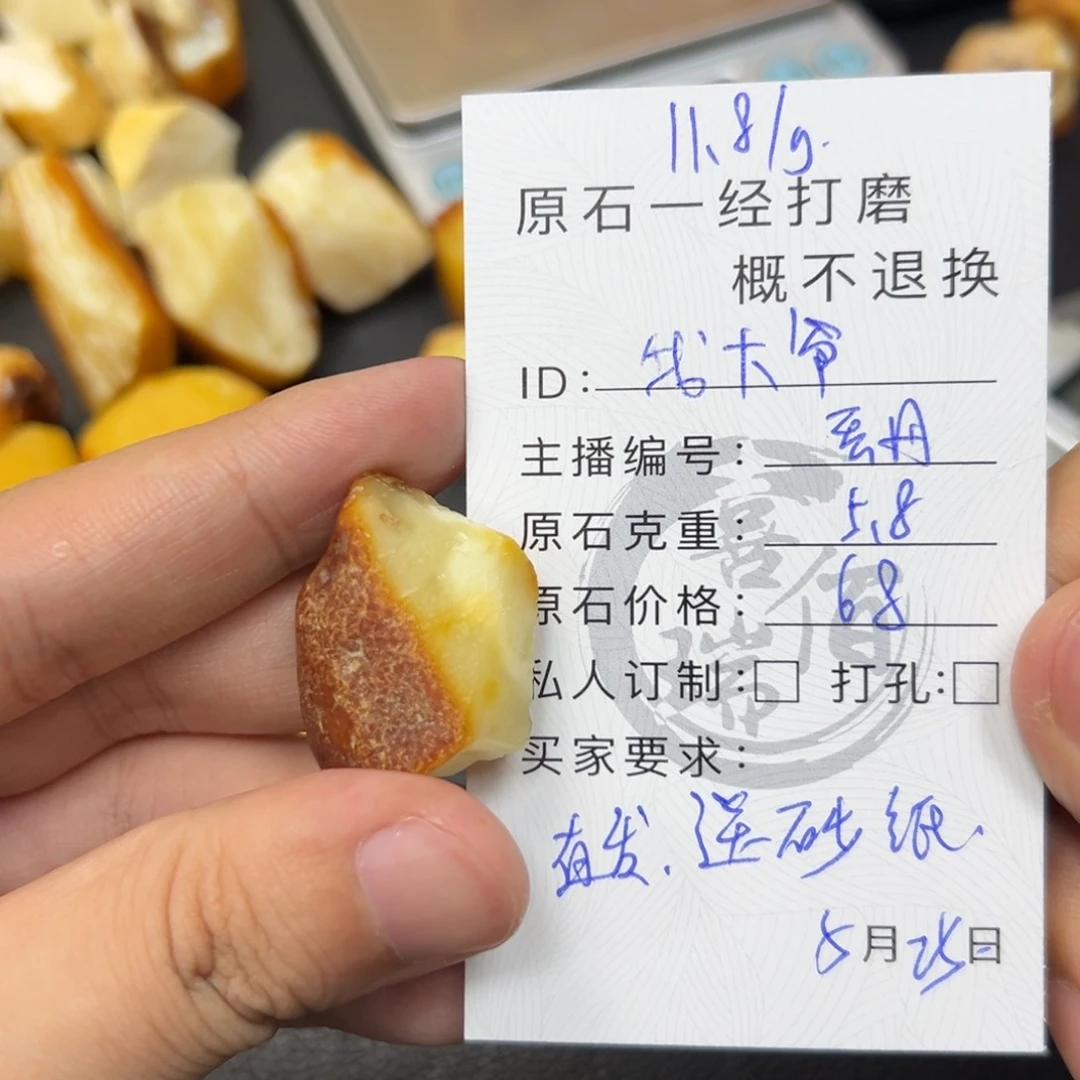 11.8/g.
原石一经打磨
概不退换
ID:
主播编号:
原石克重: 5.8
原石价格: 68
私人订制:□ 打孔:□
买家要求:
直发. 送砂纸.
5月25日